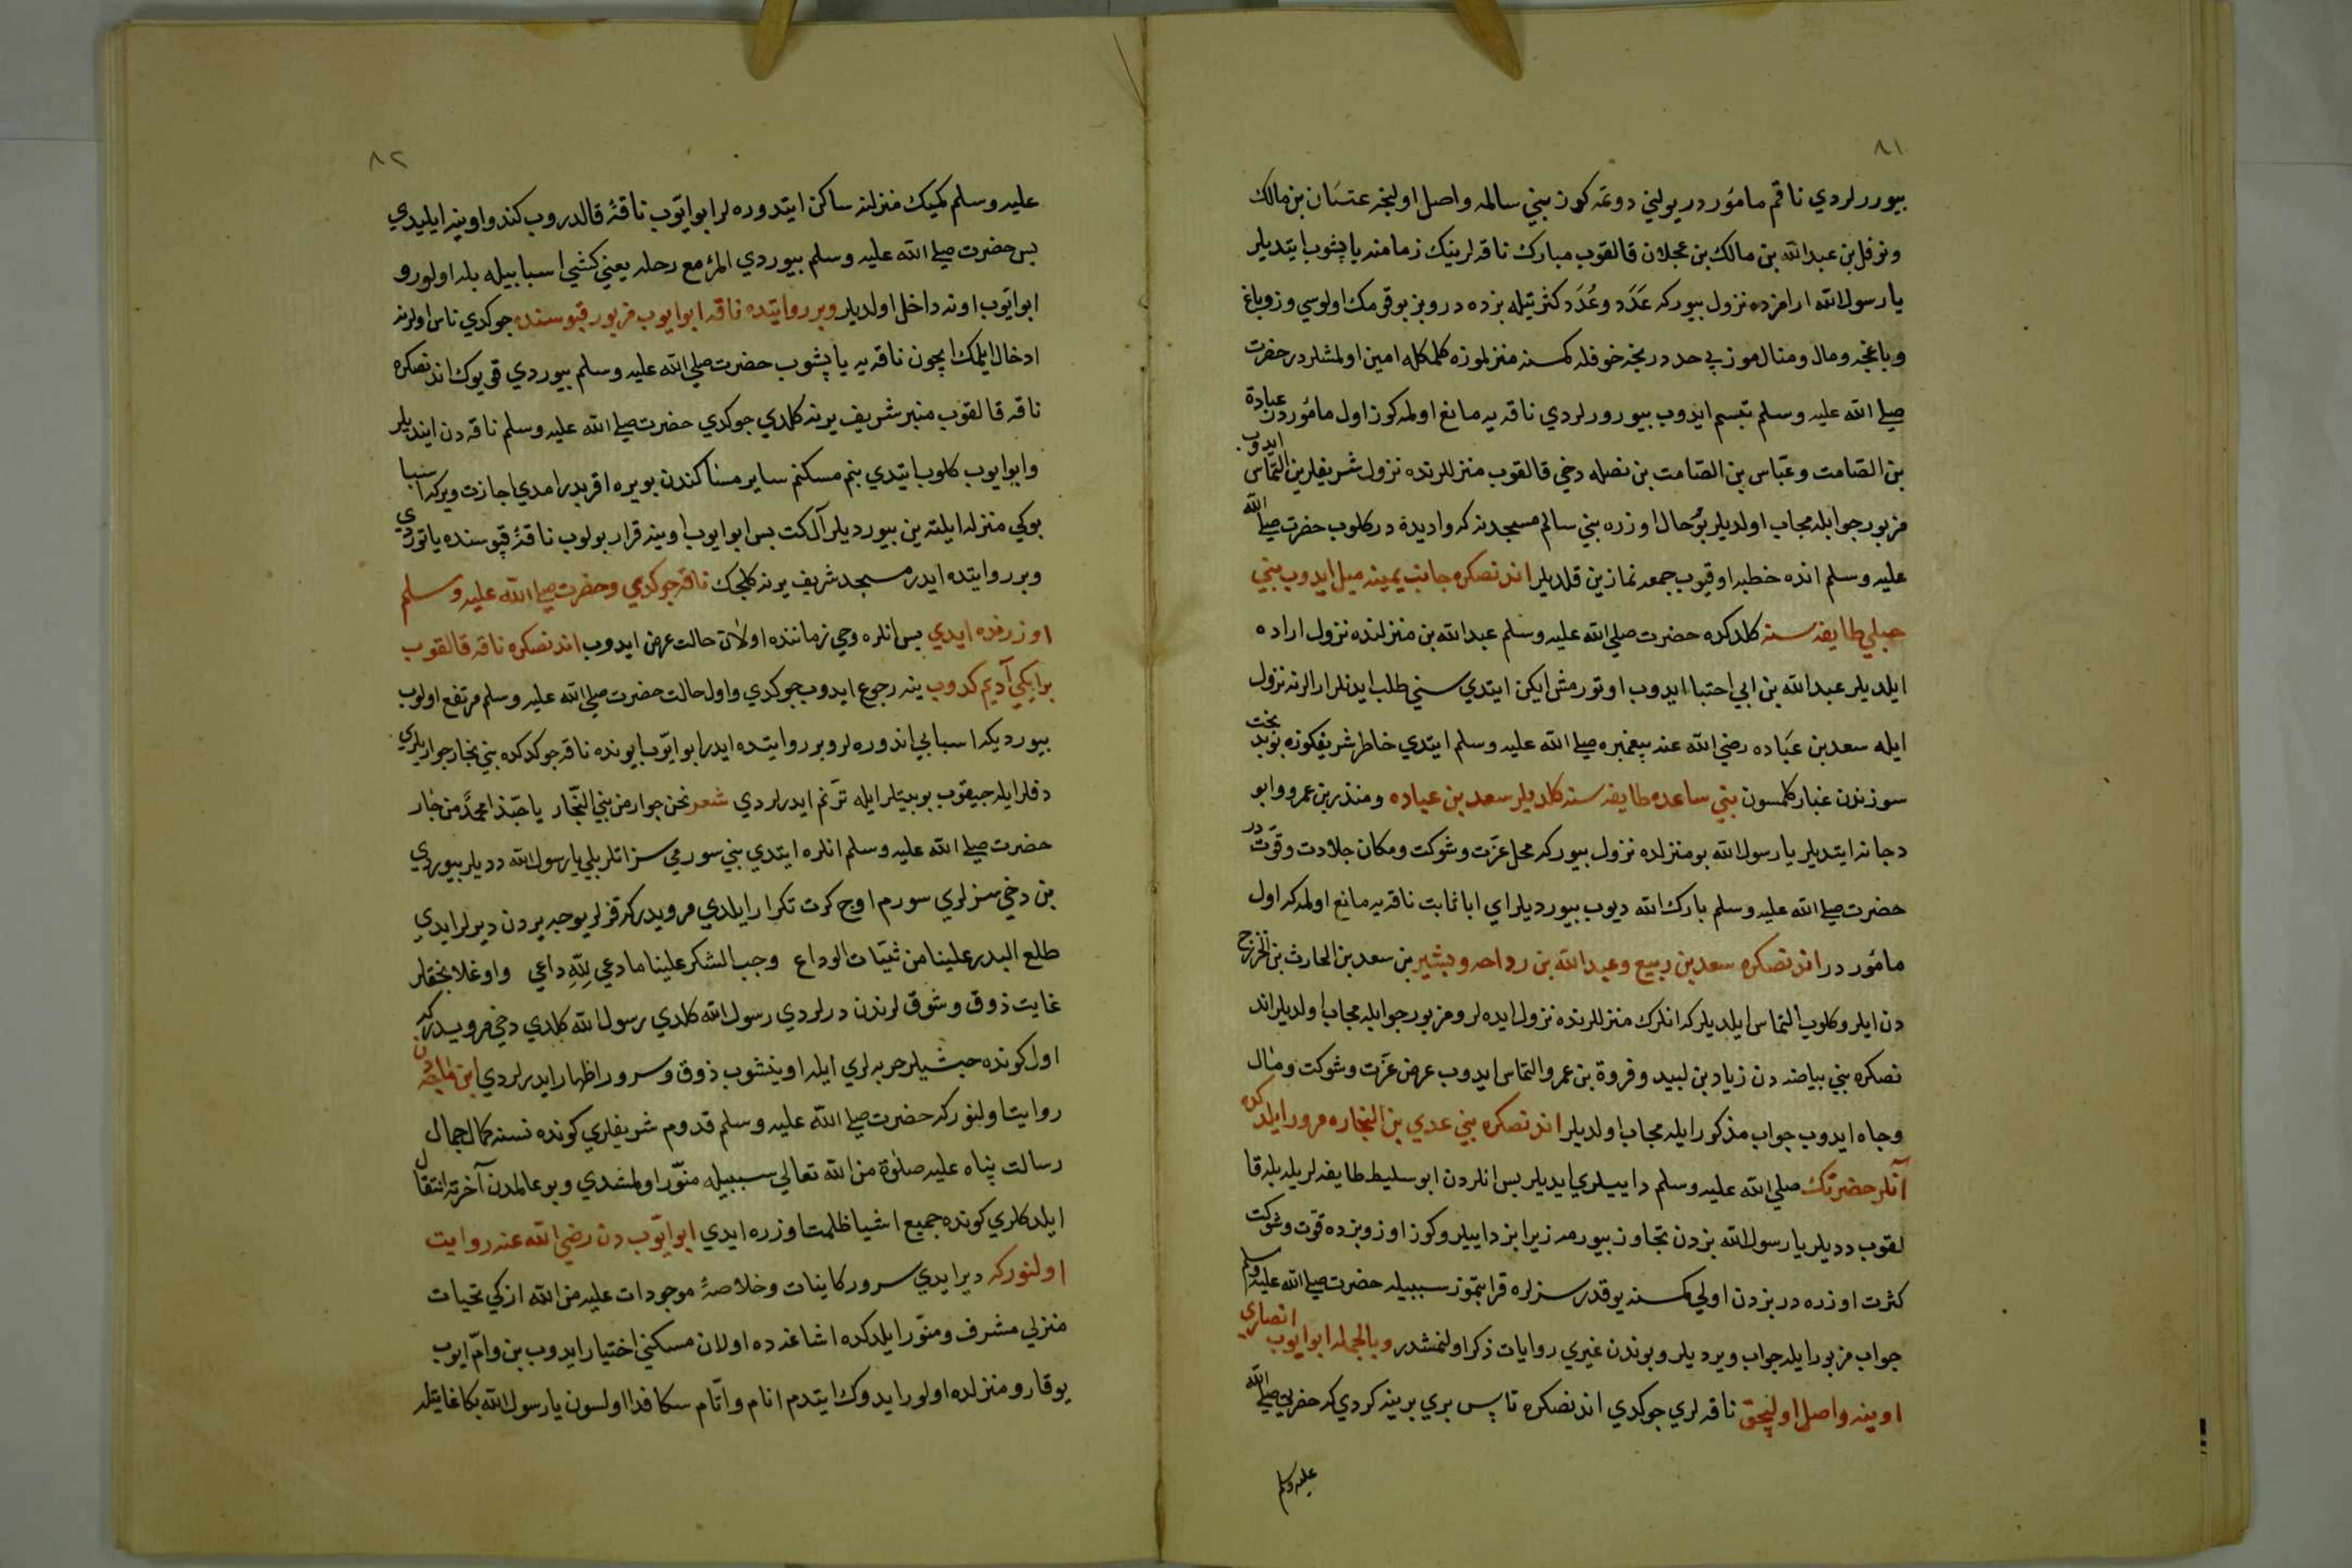 ٨١
بيوررلردي ناقم مامُوردر يولني دوتمه كوز بني سالمه واصل اوليجز عتبَان بن مالك
ونوفل بن عبدالله بن مالك بن عجلان قالقوب مبارك ناقه لرينك زمامنه ياپشوب ايتديلر
يارسول الله ارامزده نزول بيوركه عَدَد وعُدَد كثرتيله بزده در وبز بوقومك اولوسي وزوباغ
وباغچه ومال ومنالموز بي حددر نجه خوفله كمسنه منزلموزه كلمكله امين اولمشلردر حضرت
صلي الله عليه وسلم تبسم ايدوب بيورورلردي ناقه يه مانع اولمه كوز اول مامُوردر عبادة
بن الصّامت وعبّاس بن الصّامت بن نضله دخي قالقوب منزللرنده نزول شريفلرين التماس ايدوب
مزبور جوابله مجاب اولديلر بو حال اوزره بني سالم مسجدنه كه واديدة در كلوب حضرت صلي الله
عليه وسلم انده خطبه اوقيوب جمعه نمازين قلديلر اندنصكره جانب يمينه ميل ايدوب بني
حبلي طايفه سنه كلدكده حضرت صلي الله عليه وسلم عبدالله بن منزلنده نزول اراده
ايلديلر عبدالله بن ابي احتبا ايدوب اوتورمش ايكن ايتدي سني طلب ايدنلرارالرنه نزول
ايله سعد بن عبَاده رضي الله عنه پيغمبره صلي الله عليه وسلم ايتدي خاطر شريفكوزه بو بدبخت
سوزندن غبار كلمسون بني ساعده طايفه سنه كلديلر سعد بن عباده ومنذر بن عمرو وابو
دجانه ايتديلر يارسول الله بو منزلده نزول بيوركه محل عزّت وشوكت ومكان جلادت وقوّت در
حضرت صلي الله عليه وسلم بارك الله ديوب بيورديلر اي اباثابت ناقه يه مانع اولمه كه اول
مامُوردر اندنصكره سعد بن ربيع وعبدالله بن رواحه وبشير بن سعد بن الحارث بن الخزرج
دن ايلرو كلوب التماس ايلديلر كه انلرك منزللرنده نزول ايده لر ومزبور جوابله مجاب اولديلر اند
نصكره بني بياضه دن زياد بن لبيد وفروة بن عمرو التماس ايدوب عرض عزّت وشوكت ومال
وجاه ايدوب جواب مذكور ايله مجاب اولديلر اندنصكره بني عدي بن النجاره مرور ايلدكده
آنلر حضرتك صلي الله عليه وسلم داييلري ايديلر بس انلردن ابو سليط طايفه لريله بله قا
لقوب دديلر يارسول الله بزدن تجاوز بيورمه زيرا بز داييلروكوز اوزوبزده قوّت وشوكت
كثرت اوزره در بزدن اولي كمسنه يوقدر سزلره قرابتموز سببيله حضرت صلي الله عليه وسلم
جواب مزبور ايله جواب ويرديلر وبوندن غيري روايات ذكر اولنمشدر وبالجمله ابو ايوب انصاري
اوينه واصل اوليجق ناقه لري جوكدي اندنصكره ناس بري برينه كردي كه حضرتي صلي الله
عليه وسلم
٨٢
عليه وسلم كميك منزلنه ساكن ايتدوره لر ابو ايّوب ناقهٔ قالدروب كندو اوينه ايليدي
بس حضرت صلي الله عليه وسلم بيوردي المرٔ مع رحله يعني كشي اسبابيله بله اولور و
ابو ايّوب اونه داخل اولديلر وبر روايتده ناقه ابو ايوب مزبور قپوسنده جوكدي ناس اولرنه
ادخال ايلمك ايچون ناقه يه ياپشوب حضرت صلي الله عليه وسلم بيوردي قويوك اندنصكره
ناقه قالقوب منبر شريف يرينه كلدي جوكدي حضرت صلي الله عليه وسلم ناقه دن اينديلر
وابو ايوب كلوب ايتدي بنم مسكنم ساير مساكندن بو يره اقربدر امدي اجازت ويركه اسبا
بوكي منزله ايلته ين بيورديلر آل كت بس ابو ايوب اوينه قرار بولوب ناقهٔ قپوسنده ياتوردي
وبر روايتده ايدر مسجد شريف يرنه كلجك ناقه جوكدي وحضرت صلي الله عليه وسلم
اوزرنده ايدي بس انلره وحي زماننده اولان حالت عرض ايدوب اندنصكره ناقه قالقوب
بر ايكي آديم كدوب ينه رجوع ايدوب جوكدي واول حالت حضرت صلي الله عليه وسلم مرتفع اولوب
بيورديكه اسبابي اندوره لر وبر روايتده ايدر ابو ايّوب ايونده ناقه جوكدكده بني نجار جواريلري
دفلر ايله جيقوب بو بيتلر ايله ترّنم ايدرلردي شعر نحن جوار من بني النجّار ياحبّذا محمّدٌ من جٰار
حضرت صلي الله عليه وسلم انلره ايتدي بني سورمي سز انلر بلي يارسول الله دديلر بيوردي
بن دخي سزلري سورم اوج كرت تكرار ايلدي مرويدركه قزلر يوجه يردن ديرلر ايدي
طلع البدر علينا من ثنيّات الوداع وجب الشكر علينا ما دعي لِلّهِ داعي واوغلانجقلر
غايت ذوق وشوق لرندن درلردي رسول الله كلدي رسول الله كلدي دخي مرويدركه
اول كونده حبشيلر حربه لري ايله اوينشوب ذوق وسرور اظهار ايدرلردي ابن ماجه دن
روايت اولنوركه حضرت صلي الله عليه وسلم قدوم شريفلري كونده نسنه كمال جمال
رسالت پناه عليه صلوٰة من الله تعالي سببيله منوّر اولمشدي وبو عالمدن آخرته انتقال
ايلدكلري كونده جميع اشيا ظلمت اوزره ايدي ابو ايّوب دن رضي الله عنه روايت
اولنوركه دير ايدي سرور كاينات وخلاصهٔ موجودات عليه من الله ازكي تحيات
منزلي مشرف ومنوّر ايلدكده اشاغه ده اولان مسكني اختيار ايدوب بن وامّ ايوب
يوقارو منزلده اولور ايدوك ايتدم انام واتام سكا فدا اولسون يارسول الله بكا غايتله